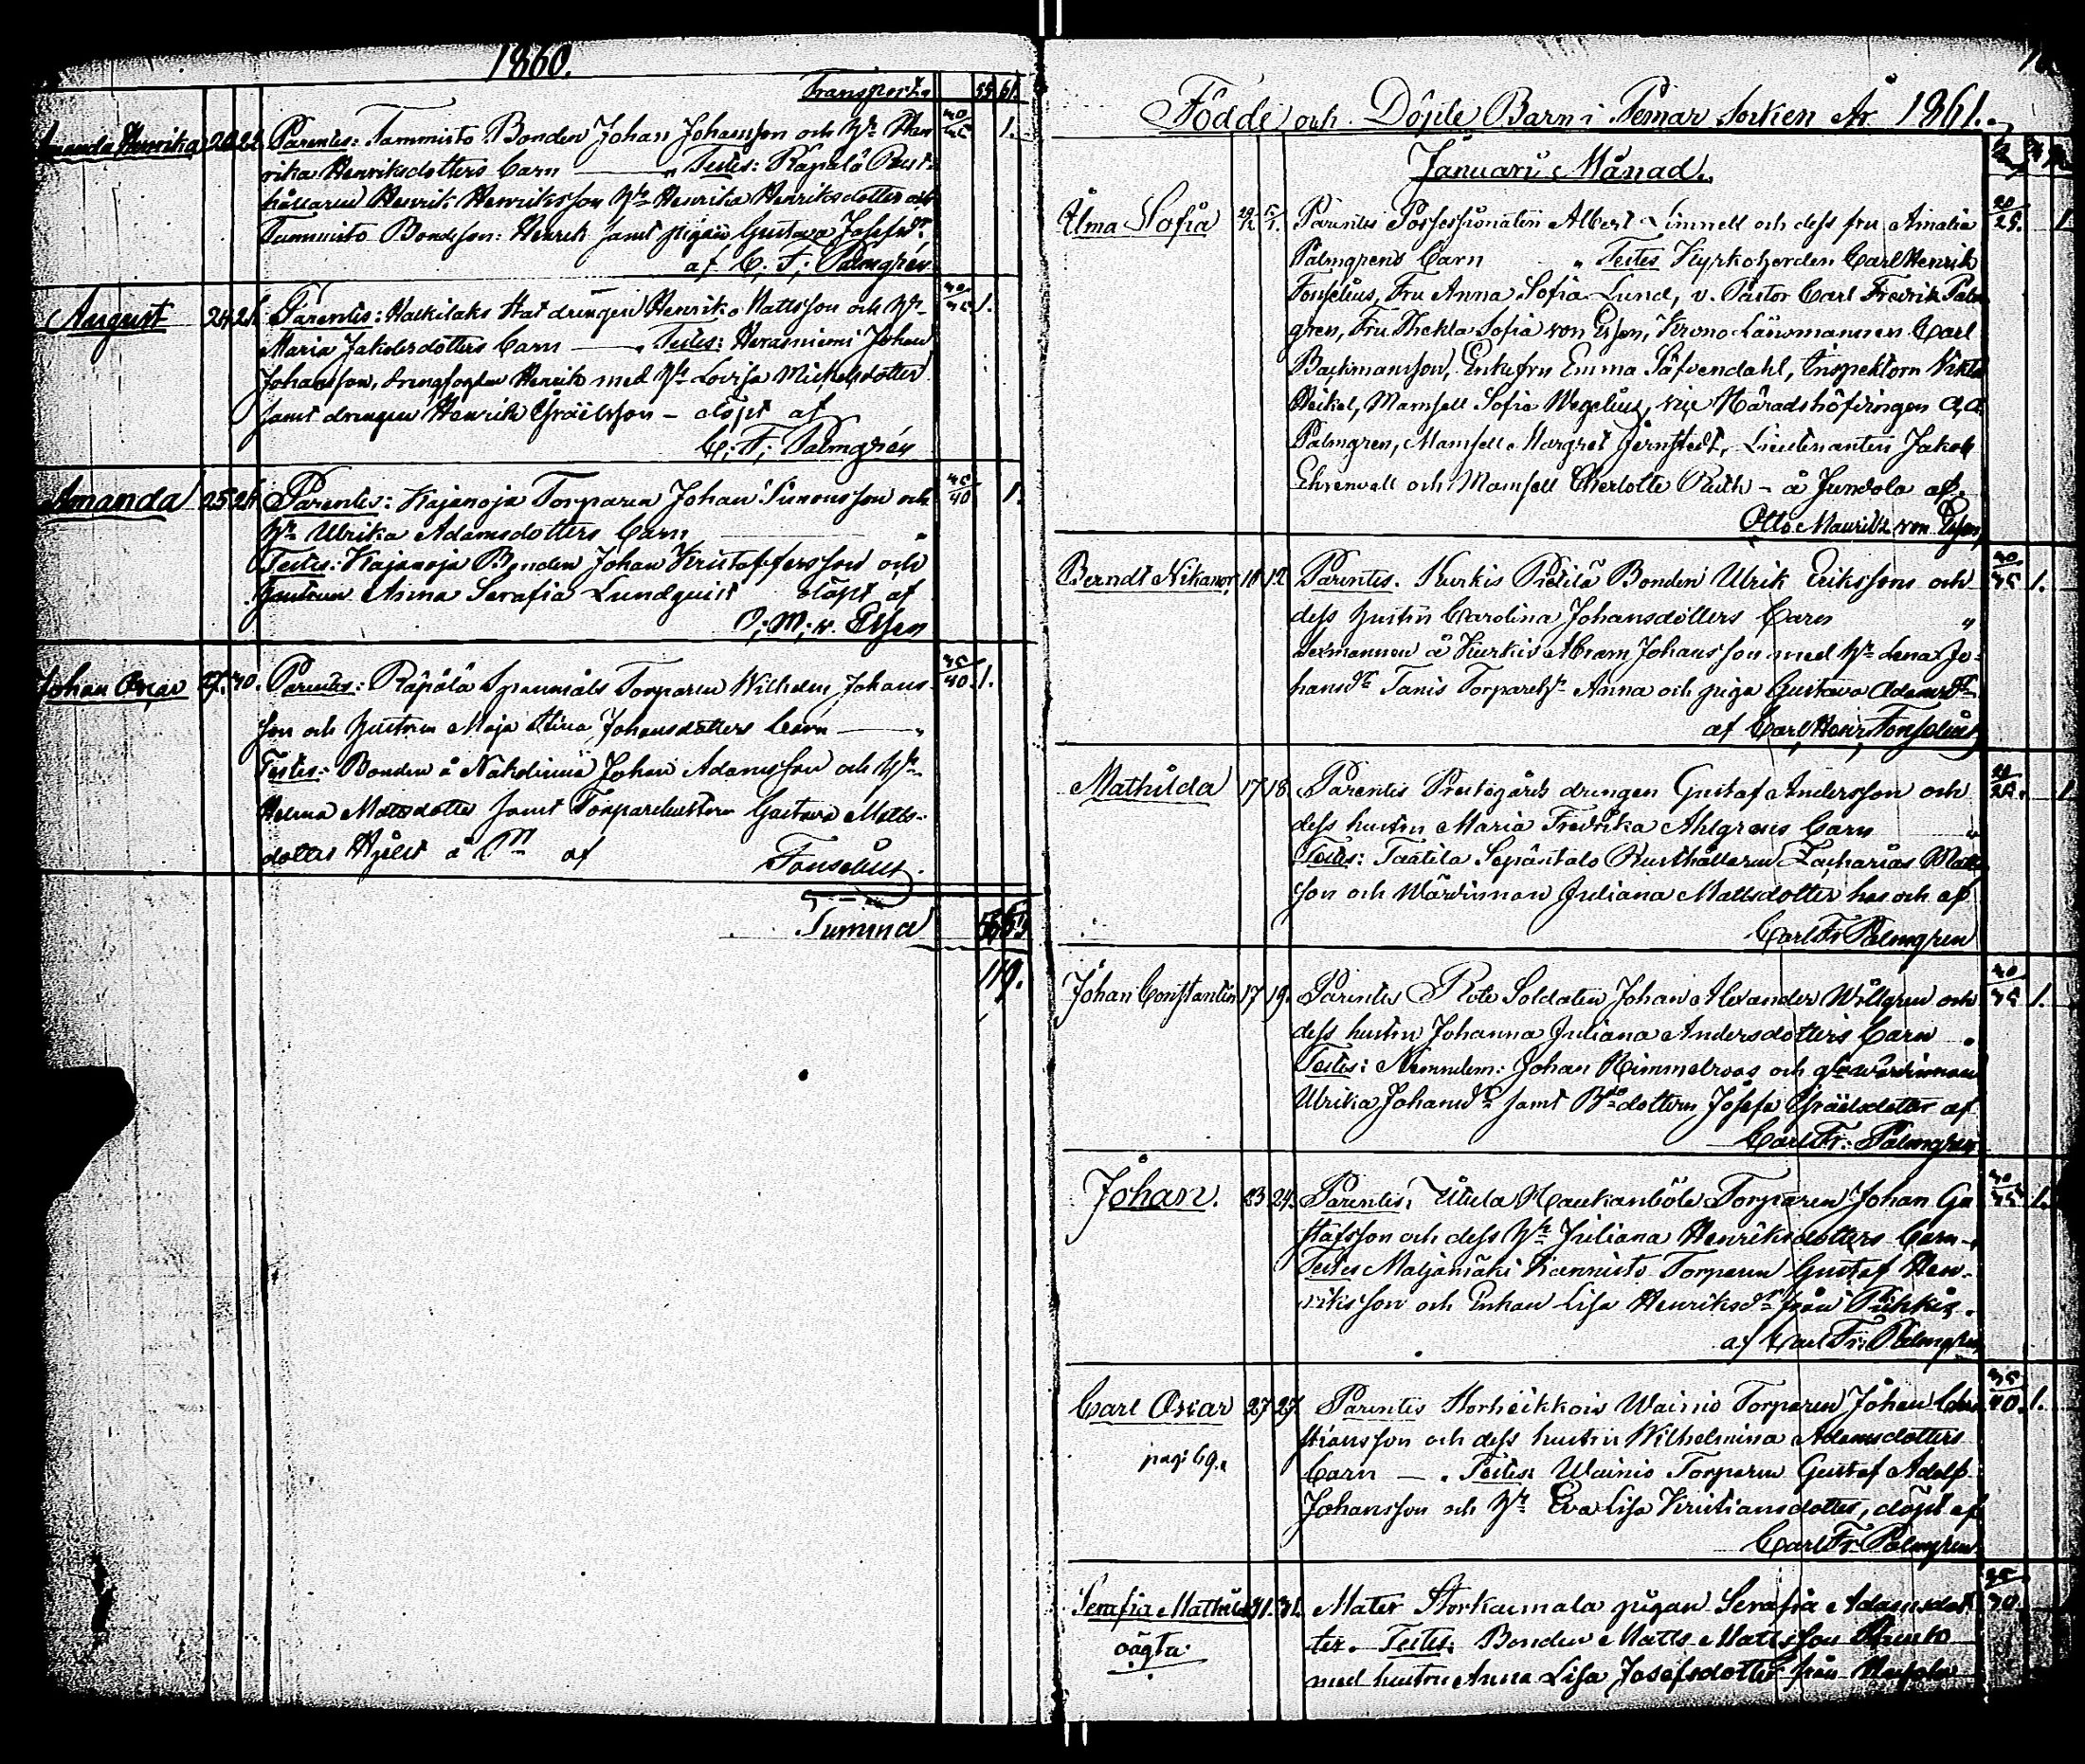 1860.
Transport. 55 61.
Amanda Henrika 20 22 Parentes: Tammisto Bonden Johan Johansson och Hr Hen 40/45 1.
rika Henriksdotters barn — Testes: Räpälä Rust-
hållaren Henrik Henriksson Hr Henrika Henriksdotter och
Tammisto Bondeson: Henrik samt pigan Gustava Josefsdr.
af C: F: Palmgrén
August 24 26 Parentes: Statdrengen Henrik Mattsson och Hr 1.
Maria Jakobsdotters barn — Testes: Herasniemi Johan
Johansson, drengfogden Henrik med Hr Lovisa Michelsdotter
samt drengen Henrik Israëlsson — döpt af
C: F: Palmgrén
Amanda 25 26 Parentes: Kajanoja Torparen Johan Simonsson och 1.
Hr Ulrika Adamsdotters barn
Testes: Kajanoja Bonden Johan Kristoffersson och
Anna Serafia Lundquist döpt af
O: M: v. Essen
Johan Oscar 27. 30. Parentes: Räpälä Torparen Wilhelm Johans- 35/40 1.
son och hustrun Maja Stina Johansdotters barn —
Testes: Bonden å Johan Adamsson och Hr
Helena Mattsdotter samt Torparehustrun Gustava Matts-
dotter å af Fonselius.
Summa 56 63
119.
Födde och Döpte Barn i Pemar Socken År 1861.
Januari Månad.
Alma Sofia Parentes Possessionaten Albert Limnell och dess fru Amalia 20/25. 1.
Palmgrens barn Testes Kyrkoherden Carl Henrik
Fonselius, Fru Anna Sofia Lund, v. Pastor Carl Fredrik Palm
gren, Fru Thekla Sofia von Essen, Krono Länsmannen Carl
Backmansson, Enkefru Emma Säfvendahl, Inspektorn Viktor
Heikel, Mamsell Sofia Wegelius, vice Häradshöfdingen
Palmgren, Mamsell Margret Jernstedt, Lieutenanten Jakob
Ehrenvall och Mamsell Charlotte Ruth — å Juvola af
Otto Mauritz von Essen
Berndt Nikanor 10 12 Parentes. Kurkis Pietilä Bonden Ulrik Erikssons och 1.
dess hustru Carolina Johansdotters barn
å Kurkis Abram Johansson med Hr Lena Jo-
hansdr Tanis Anna och piga Gustava Adamsdr
af Carl Henr. Fonselius
Mathilda 17 18 Parentes Prestegårds drengen Gustaf Andersson och 1.
dess hustru Maria Fredrika Ahlgrens barn
Testes: Taatila Seppäntalo Rusthållaren Zacharias Matts
son och Wärdinnan Juliana Mattsdotter här och af
Carl Fr Palmgren
Johan Constantin 17 19. Parentes Rote Soldaten Johan Alexander Wällgren och 1.
dess hustru Johanna Juliana Andersdotters barn
Testes: Johan Himmelroos och gla wärdinnan
Ulrika Johansdr samt Bdedottern Josefa Israëlsdotter af
Carl Fr: Palmgren
Johan. 23 24. Parentes, Uutela Haukanböle Torparen Johan Gu 1.
stafsson och dess Hr Juliana Henriksdotters barn —
Testes Maljamäki Kannisto Torparen Gustaf Hen-
riksson och Enkan Lisa Henriksdr från
af Carl Fr: Palmgren
Carl Oscar 27 27. Parentes Storheikkois Wainio Torparen Johan Chri 35/40. 1.
stiansson och dess hustru Wilhelmina Adamsdotters
pag: 69. barn — Testes: Wainio Torparen Gustaf Adolf
Johansson och Hr Eva Lisa Kristiansdotter, döpt af
Carl Fr Palmgren
Serafia Mathilda 31. 31. Mater Storkaumala pigan Serafia Adamsdot
oägta. ter. Testes: Bonden Matts Mattsson
med hustru Anna Lisa Josefsdotter från